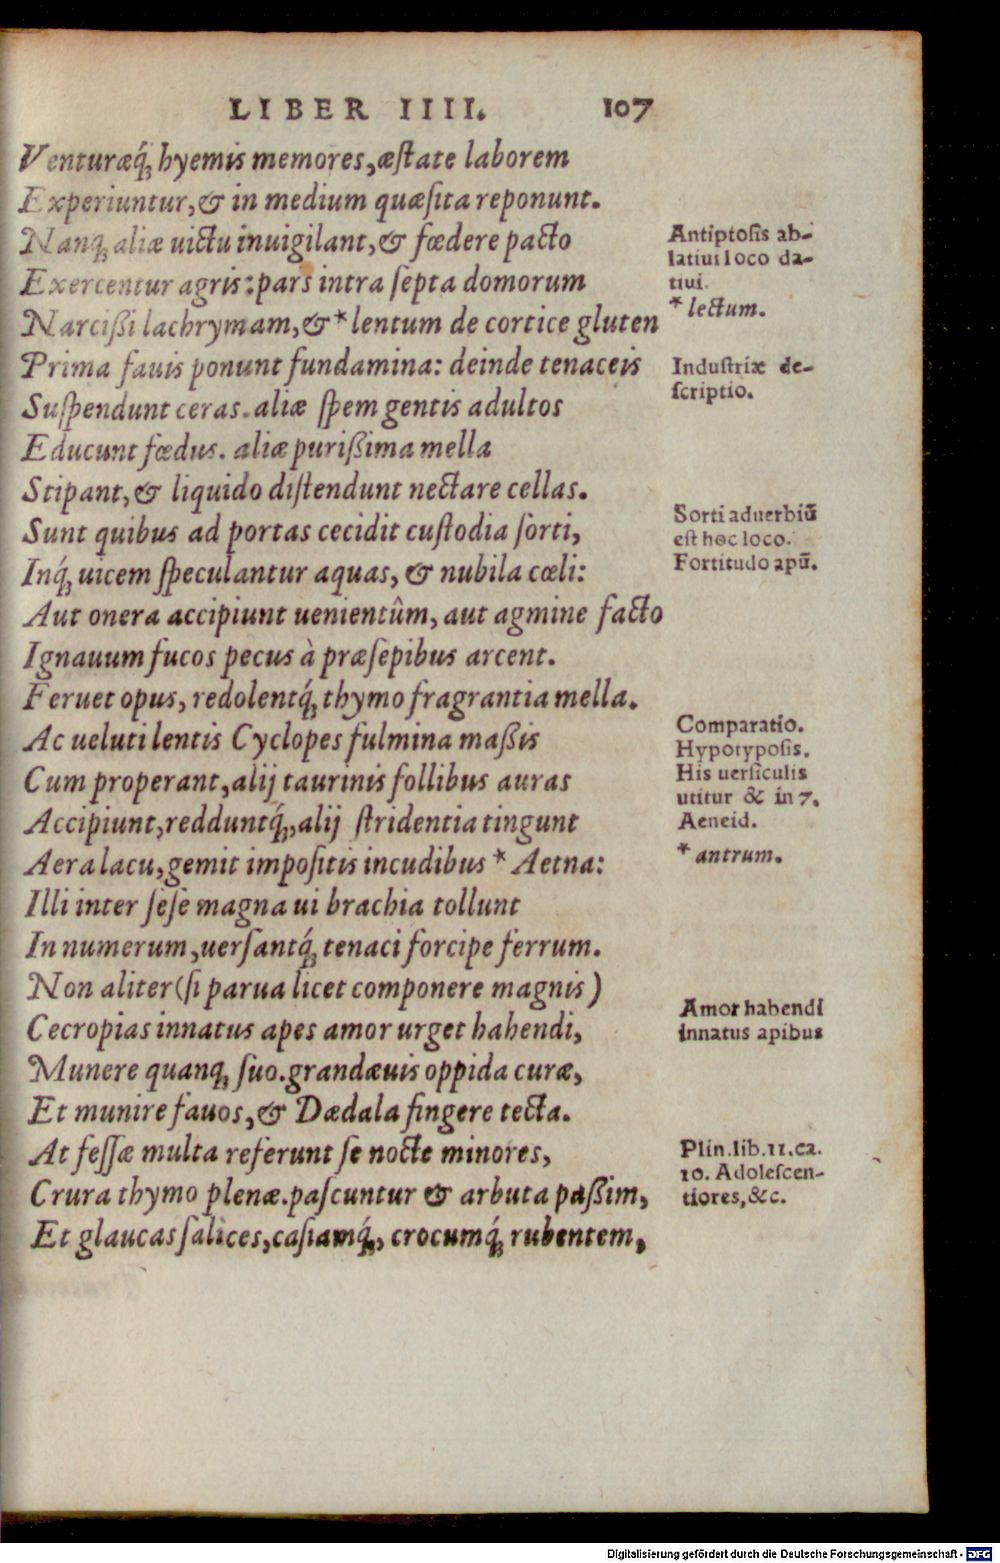 LIBER IIII. 107
Venturæq́; hyemis memores, æstate laborem
Experiuntur, & in medium quæsita reponunt.
Nanq; aliæ uictu inuigilant, & fœdere pacto
Exercentur agris: pars intra septa domorum
Narcißi lachrymam, & * lentum de cortice gluten
Prima fauis ponunt fundamina: deinde tenaceis
Suspendunt ceras. aliæ spem gentis adultos
Educunt fœdus. aliæ purißima mella
Stipant, & liquido distendunt nectare cellas.
Sunt quibus ad portas cecidit custodia sorti,
Inq́; uicem speculantur aquas, & nubila cœli:
Aut onera accipiunt uenientûm, aut agmine facto
Ignauum fucos pecus à præsepibus arcent.
Feruet opus, redolentq́; thymo fragrantia mella.
Ac ueluti lentis Cyclopes fulmina maßis
Cum properant, alij taurinis follibus auras
Accipiunt, redduntq́;, alij stridentia tingunt
Aera lacu, gemit impositis incudibus * Aetna:
Illi inter sese magna ui brachia tollunt
In numerum, uersantq́; tenaci forcipe ferrum.
Non aliter (si parua licet componere magnis)
Cecropias innatus apes amor urget habendi,
Munere quanq; suo. grandæuis oppida curæ,
Et munire fauos, & Dædala fingere tecta.
At fessæ multa referunt se nocte minores,
Crura thymo plenæ. pascuntur & arbuta paßim,
Et glaucas salices, casiamq́;, crocumq́; rubentem,
Antiptosis ab-
latiui loco da-
tiui.
* lectum.
Industriæ de-
scriptio.
Sorti aduerbiũ
est hoc loco.
Fortitudo apũ.
Comparatio.
Hypotyposis.
His uersiculis
utitur & in 7.
Aeneid.
* antrum.
Amor habendi
innatus apibus
Plin. lib. 11. ca.
10. Adolescen-
tiores, &c.
Digitalisierung gefördert durch die Deutsche Forschungsgemeinschaft - DFG